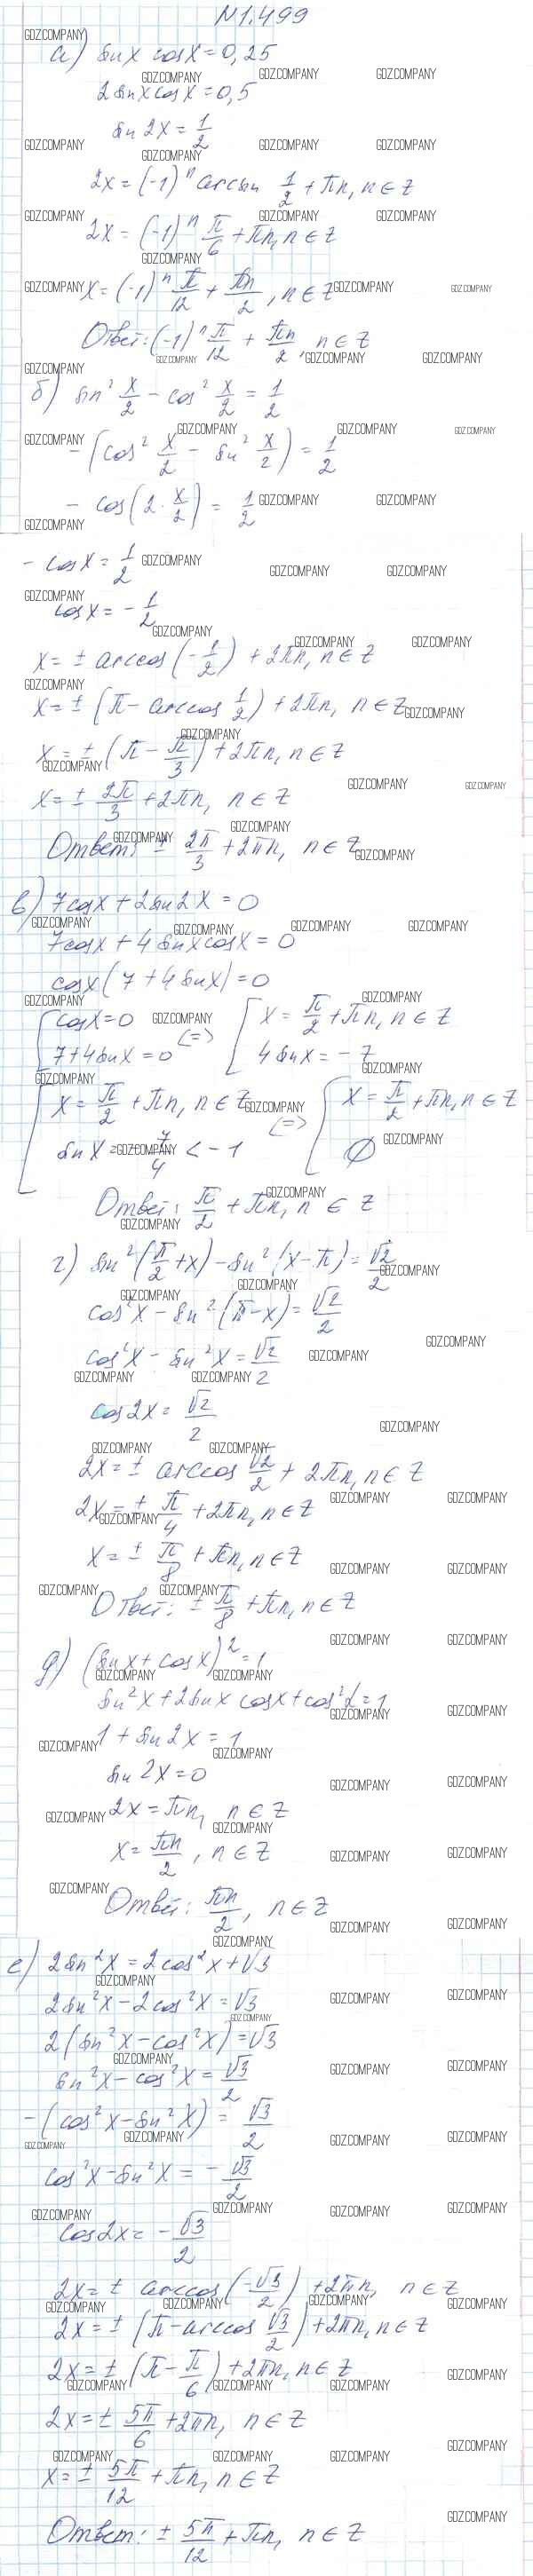 N1.499
а) sinx cosx = 0,25
2sinxcosx = 0,5
sin2x = 1/2
2x = (-1)^n arcsin 1/2 + πn, n ∈ Z
2x = (-1)^n π/6 + πn, n ∈ Z
x = (-1)^n π/12 + πn/2, n ∈ Z
Ответ: (-1)^n π/12 + πn/2, n ∈ Z
б) sin² x/2 - cos² x/2 = 1/2
-(cos² x/2 - sin² x/2) = 1/2
- cos(2 · x/2) = 1/2
- cosx = 1/2
cosx = - 1/2
x = ± arccos(-1/2) + 2πn, n ∈ Z
x = ± (π - arccos 1/2) + 2πn, n ∈ Z
x = ± (π - π/3) + 2πn, n ∈ Z
x = ± 2π/3 + 2πn, n ∈ Z
Ответ: ± 2π/3 + 2πn, n ∈ Z
в) 7cosx + 2sin2x = 0
7cosx + 4sinxcosx = 0
cosx(7 + 4sinx) = 0
[cosx = 0 <=> [x = π/2 + πn, n ∈ Z
7 + 4sinx = 0 4sinx = - 7
[x = π/2 + πn, n ∈ Z <=> [x = π/2 + πn, n ∈ Z
sinx = - 7/4 < - 1 ∅
Ответ: π/2 + πn, n ∈ Z
г) sin²(π/2 + x) - sin²(x - π) = √2/2
cos²x - sin²(π - x) = √2/2
cos²x - sin²x = √2/2
cos2x = √2/2
2x = ± arccos √2/2 + 2πn, n ∈ Z
2x = ± π/4 + 2πn, n ∈ Z
x = ± π/8 + πn, n ∈ Z
Ответ: ± π/8 + πn, n ∈ Z
д) (sinx + cosx)² = 1
sin²x + 2sinx cosx + cos²x = 1
1 + sin2x = 1
sin2x = 0
2x = πn, n ∈ Z
x = πn/2, n ∈ Z
Ответ: πn/2, n ∈ Z
е) 2sin²x = 2cos²x + √3
2sin²x - 2cos²x = √3
2(sin²x - cos²x) = √3
sin²x - cos²x = √3/2
-(cos²x - sin²x) = √3/2
cos²x - sin²x = - √3/2
cos2x = - √3/2
2x = ± arccos(-√3/2) + 2πn, n ∈ Z
2x = ± (π - arccos √3/2) + 2πn, n ∈ Z
2x = ± (π - π/6) + 2πn, n ∈ Z
2x = ± 5π/6 + 2πn, n ∈ Z
x = ± 5π/12 + πn, n ∈ Z
Ответ: ± 5π/12 + πn, n ∈ Z
GDZ.COMPANY